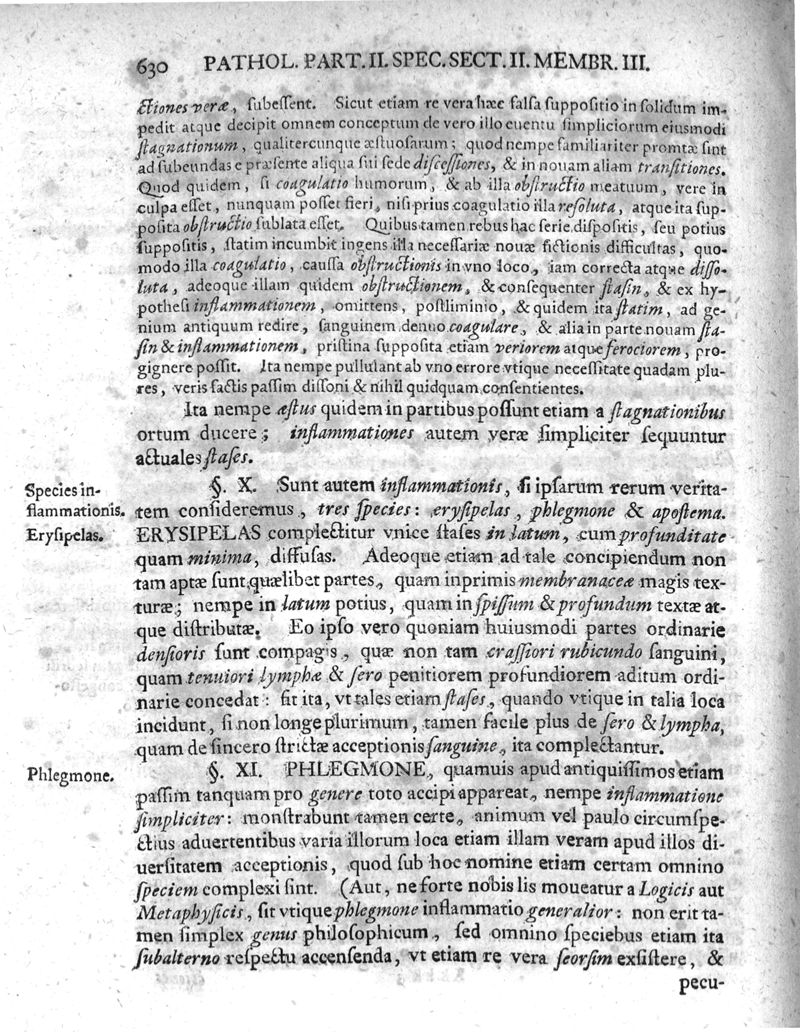 630 PATHOL. PART. II. SPEC. SECT. II. MEMBR. III.
ctiones veræ, ſubeſſent. Sicut etiam re vera hæc falſa ſuppoſitio in ſolidum im-
pedit atque decipit omnem conceptum de vero illo euentu ſimpliciorum eiusmodi
ſtagnationum, qualitercunque æſtuoſarum; quod nempe familiariter promtæ ſint
ad ſubeundas e præſente aliqua ſui ſede diſceſſiones, & in nouam aliam tranſitiones.
Quod quidem, ſi coagulatio humorum, & ab illa obſtructio meatuum, vere in
culpa eſſet, nunquam poſſet fieri, niſi prius coagulatio illa reſoluta, atque ita ſup-
poſita obſtructio ſublata eſſet. Quibus tamen rebus hac ſerie diſpoſitis, ſeu potius
ſuppoſitis, ſtatim incumbit ingens illa neceſſariæ nouæ fictionis difficultas, quo-
modo illa coagulatio, cauſſa obſtructionis in vno loco, iam correcta atque diſſo-
luta, adeoque illam quidem obſtructionem, & conſequenter ſtaſin, & ex hy-
potheſi inflammationem, omittens, poſtliminio, & quidem ita ſtatim, ad ge-
nium antiquum redire, ſanguinem denuo coagulare, & alia in parte nouam ſta-
ſin & inflammationem, priſtina ſuppoſita etiam veriorem atque ferociorem, pro-
gignere poſſit. Ita nempe pullulant ab vno errore vtique neceſſitate quadam plu-
res, veris factis paſſim diſſoni & nihil quidquam conſentientes.
Ita nempe æſtus quidem in partibus poſſunt etiam a ſtagnationibus
ortum ducere; inflammationes autem veræ ſimpliciter ſequuntur
actuales ſtaſes.
Species in-
flammationis.
Eryſipelas.
§. X. Sunt autem inflammationis, ſi ipſarum rerum verita-
tem conſideremus, tres ſpecies: eryſipelas, phlegmone & apoſtema.
ERYSIPELAS complectitur vnice ſtaſes in latum, cum profunditate
quam minima, diffuſas. Adeoque etiam ad tale concipiendum non
tam aptæ ſunt quælibet partes, quam inprimis membranaceæ magis tex-
turæ; nempe in latum potius, quam in ſpiſſum & profundum textæ at-
que diſtributæ. Eo ipſo vero quoniam huiusmodi partes ordinarie
denſioris ſunt compagis, quæ non tam craſſiori rubicundo ſanguini,
quam tenuiori lymphæ & ſero penitiorem profundiorem aditum ordi-
narie concedat: fit ita, vt tales etiam ſtaſes, quando vtique in talia loca
incidunt, ſi non longe plurimum, tamen facile plus de ſero & lympha,
quam de ſincero ſtrictæ acceptionis ſanguine, ita complectantur.
Phlegmone.
§. XI. PHLEGMONE, quamuis apud antiquiſſimos etiam
paſſim tanquam pro genere toto accipi appareat, nempe inflammatione
ſimpliciter: monſtrabunt tamen certe, animum vel paulo circumſpe-
ctius aduertentibus varia illorum loca etiam illam veram apud illos di-
uerſitatem acceptionis, quod ſub hoc nomine etiam certam omnino
ſpeciem complexi ſint. (Aut, ne forte nobis lis moueatur a Logicis aut
Metaphyſicis, ſit vtique phlegmone inflammatio generalior: non erit ta-
men ſimplex genus philoſophicum, ſed omnino ſpeciebus etiam ita
ſubalterno reſpectu accenſenda, vt etiam re vera ſeorſim exſiſtere, &
pecu-